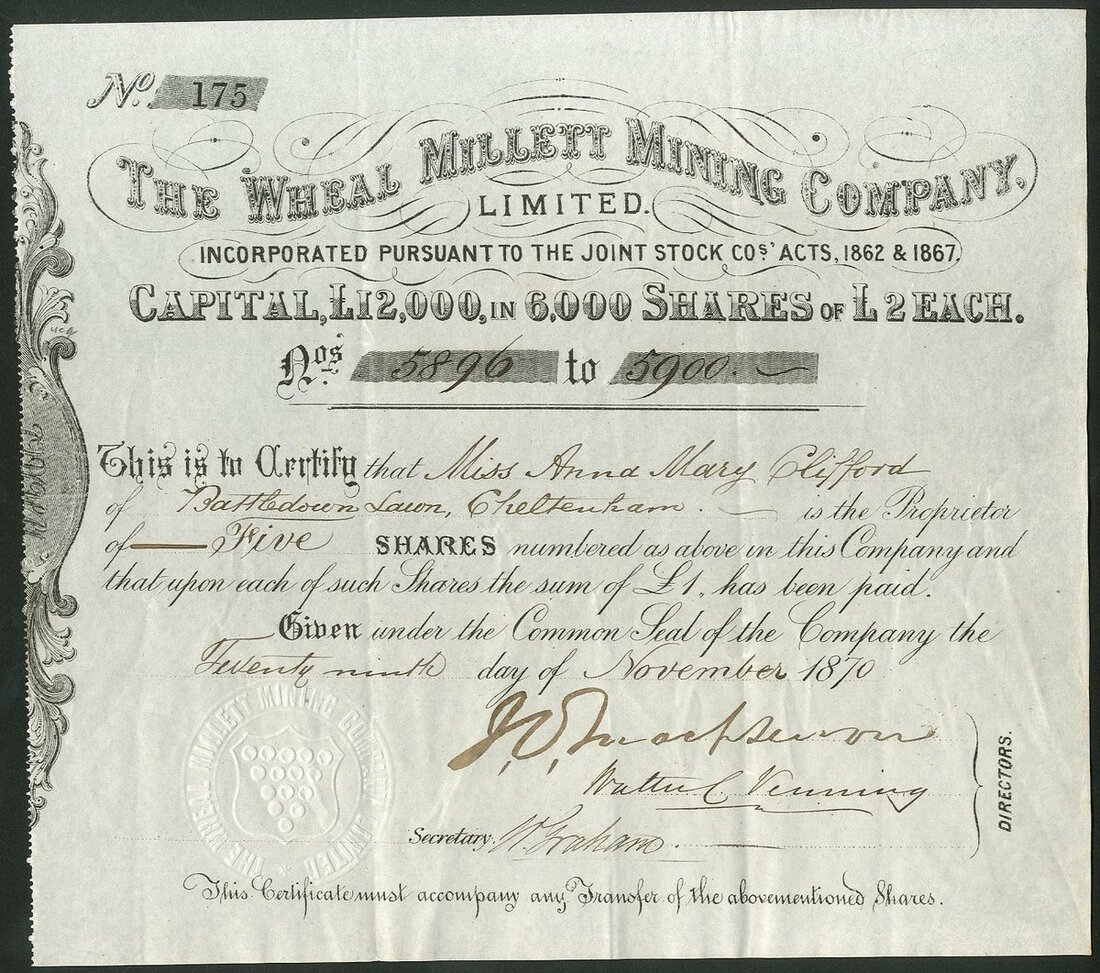 No. 175
THE WHEAL MILLETT MINING COMPANY,
LIMITED.
INCORPORATED PURSUANT TO THE JOINT STOCK COS' ACTS, 1862 & 1867,
CAPITAL, £12,000, IN 6,000 SHARES OF £2 EACH.
Nos. 5896 to 5900.
This is to Certify that Miss Anna Mary Clifford
of Battledown Lawn, Cheltenham. is the Proprietor
of Five SHARES numbered as above in this Company and
that upon each of such Shares the sum of £1, has been paid.
Given under the Common Seal of the Company the
Twenty ninth day of November 1870
Walter C. Venning
DIRECTORS.
Secretary. W. Graham.
THE WHEAL MILLETT MINING COMPANY LIMITED
This Certificate must accompany any Transfer of the abovementioned Shares.